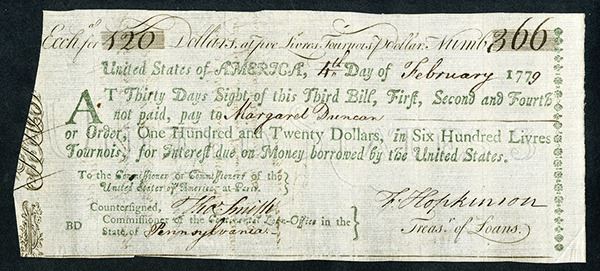 Exchª. for 120 Dollars, at five Livres Tournois p Dollar. Numb. 366
United States of AMERICA, 4th Day of February 1779
AT Thirty Days Sight of this Third Bill, First, Second and Fourth
not paid, pay to Margaret Duncan
or Order, One Hundred and Twenty Dollars, in Six Hundred Livres
Tournois, for Interest due on Money borrowed by the United States.
To the Commissioner or Commissioners of the
United States of America, at Paris.
Countersigned, Thos. Smith
Commissioner of the Continental Loan-Office in the
BD State of Pennsylvania.
F. Hopkinson
Treasr. of Loans.